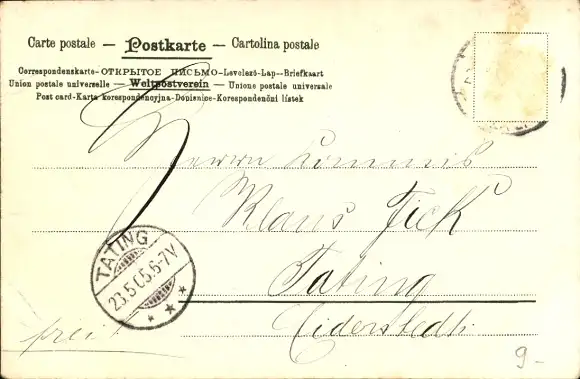 Carte postale — Postkarte — Cartolina postale
Correspondenskarte-ОТКРЫТОЕ ПИСЬМО-Levelező-Lap--Briefkaart
Union postale universelle — Weltpostverein — Unione postale universale
Post card-Karta korespondencyjna-Dopisnice-Korespondenční lístek
Herrn Kommis
Klaus Fick
Tating
TATING
23.5.05.6-7V
Eiderstedt.
frei!
9-